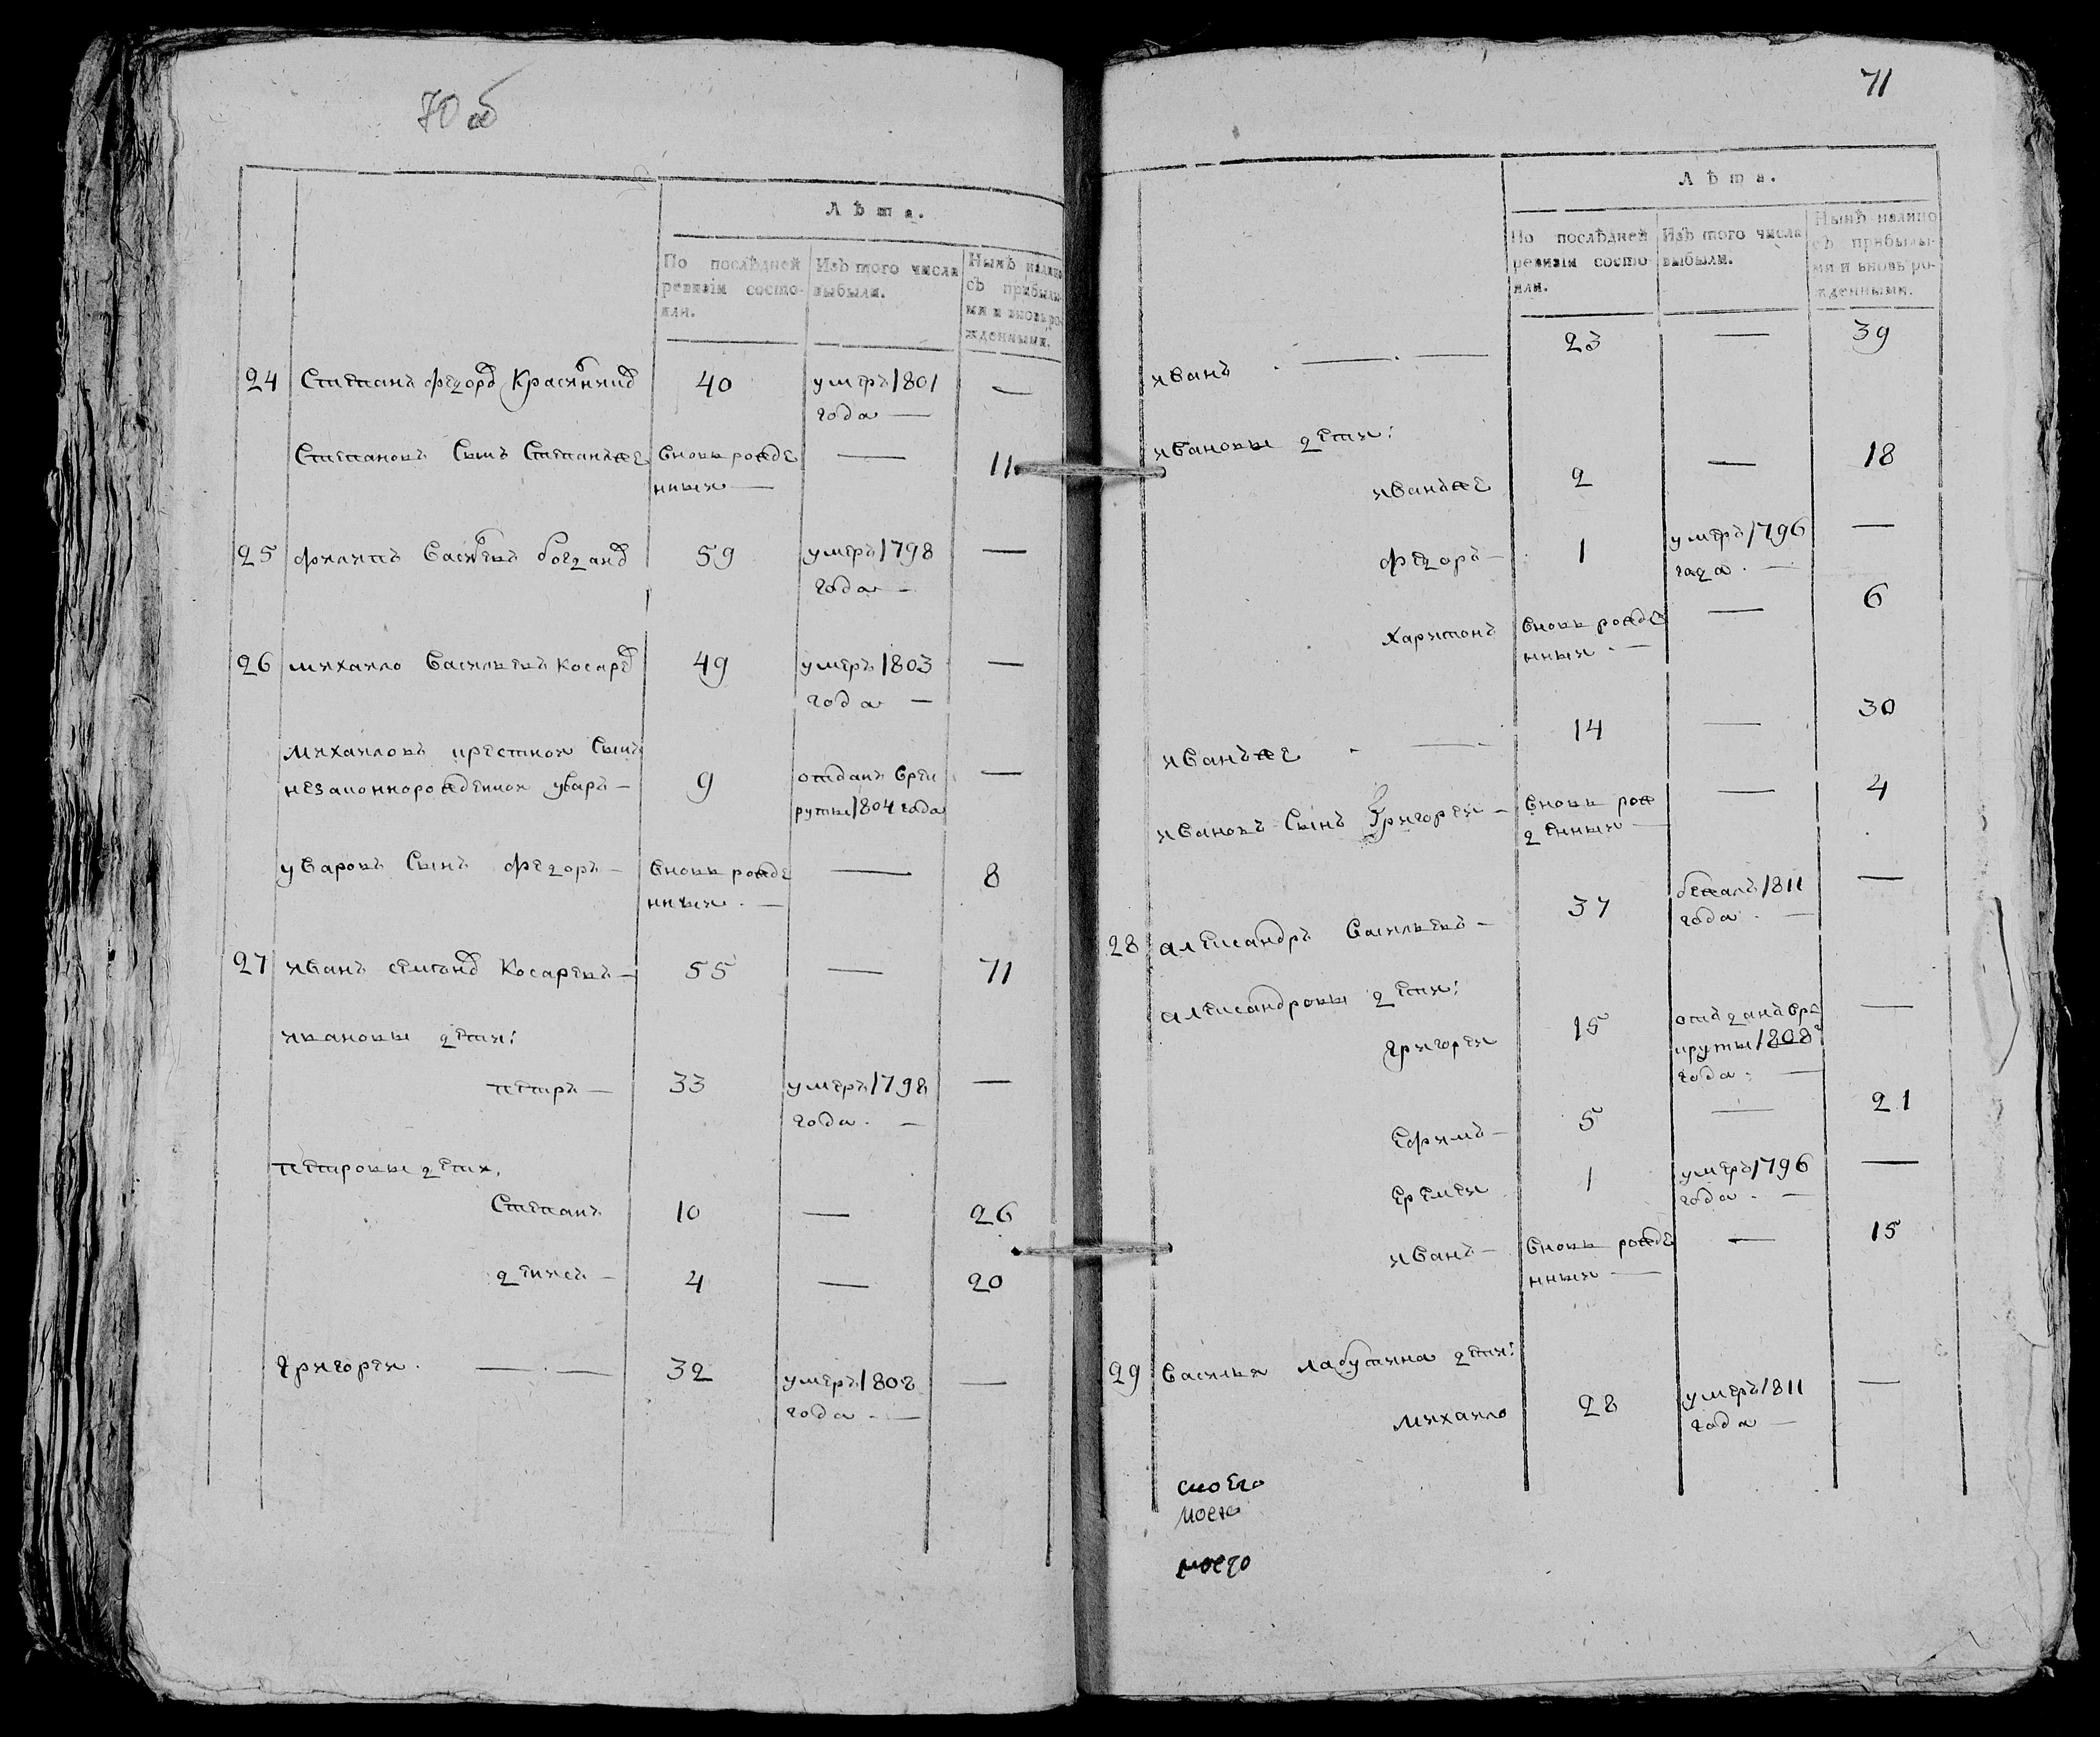 70 об
Лѣта.
По послѣдней
ревизіи состо-
яли.
Изъ того числа
выбыли.
Нынѣ налицо
съ прибылы-
ми и вновь ро-
жденными.
24 Степанъ федоровъ 40 умеръ 1801 —
года —
Степановъ Сынъ Степанъже вновь рожде — 11
нныи —
25 филипъ Васильевъ 59 умеръ 1798 —
года —
26 михаило васильевъ косаревъ 49 умеръ 1803 —
года —
Михаиловъ приемнои Сынъ
незаконнорожденнои уваръ — 9 отданъ врек —
руты 1804 года
уваровъ Сынъ федоръ — вновь рожде — 8
нныи . —
27 иванъ семионовъ Косаревъ — 55 — 71
ивановы дети:
петръ — 33 умеръ 1798 —
года . —
петровы дети,
Степанъ 10 — 26
денисъ — 4 — 20
григореи . — . — 32 умеръ 1808 —
года . —
71
Лѣта.
По послѣдней
ревизіи состо-
яли.
Изъ того числа
выбыли.
Нынѣ налицо
съ прибылы-
ми и вновь ро-
жденными.
иванъ . — . — 23 — 39
ивановы дети:
иванъже 2 — 18
федоръ — 1 умеръ 1796 —
года . —
харитонъ вновь рожде — 6
нныи . —
иванъже . — 14 — 30
ивановъ Сынъ Григореи — вновь рож — 4
денныи —
28 александръ васильевъ — 37 бежалъ 1811 —
года . —
александровы дети:
григореи 15 отъданъ вре —
круты 1808
года . —
ефимъ — 5 — 21
еремеи 1 умеръ 1796 —
года . —
иванъ — вновь рожде — 15
нныи —
29 василья лабутина дети:
михаило 28 умеръ 1811 —
года —
моего
моего